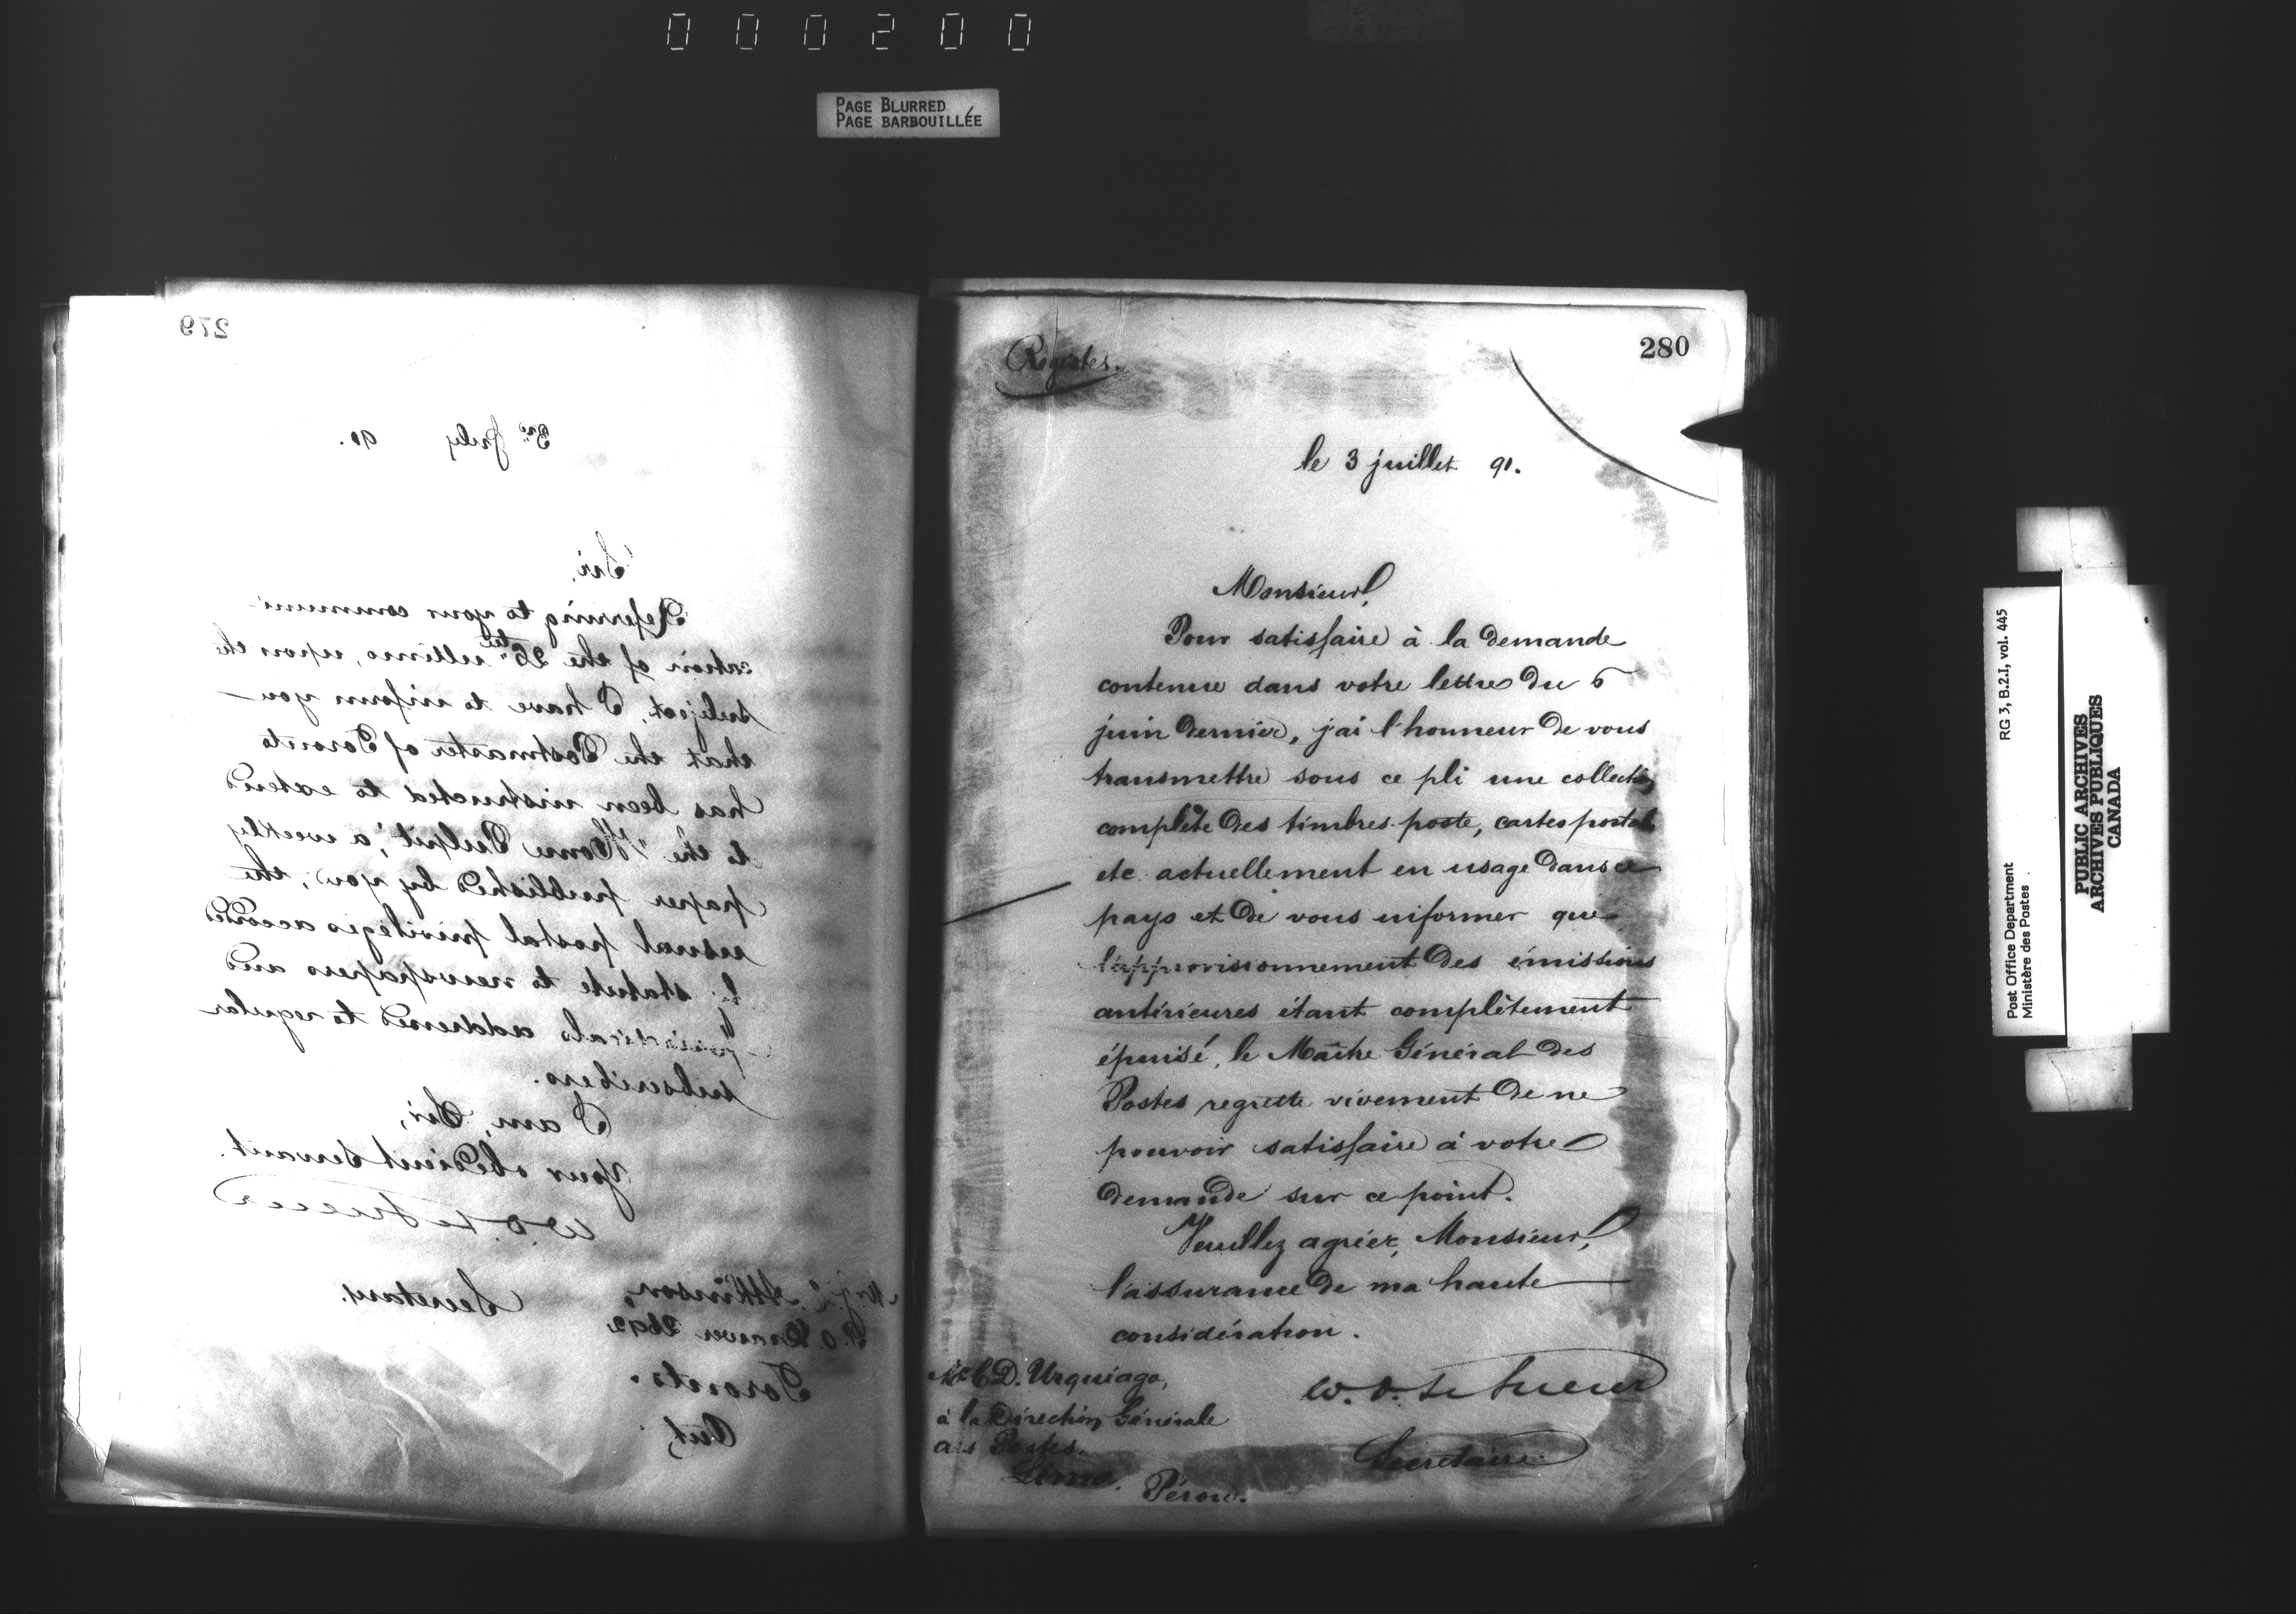 000200
PAGE BLURRED
PAGE BARBOUILLÉE
279
3rd July 91.
Sir,
Referring to your communi-
cation of the 26th ultimo, upon the
subject, I have to inform you
that the Postmaster of Toronto
has been instructed to extend
to the "Home Pulpit", a weekly
paper published by you, the
usual postal privileges accorded
by statute to newspapers and
periodicals addressed to regular
subscribers.
I am, Sir,
Your obedient Servant.
W. D. LeSueur
Secretary.
Atkinson,
P.O. Drawer 2692
Toronto.
Ont,
280
le 3 juillet 91.
Monsieur,
Pour satisfaire à la demande
contenue dans votre lettre du 6
juin dernier, j'ai l'honneur de vous
transmettre sous ce pli une collection
complète des timbres-poste, cartes postales
etc. actuellement en usage dans ce
pays et de vous informer que
l'approvisionnement des émissions
antérieures étant complètement
épuisé, le Maître Général des
Postes regrette vivement de ne
pouvoir satisfaire à votre
demande sur ce point.
Veuillez agréer, Monsieur,
l'assurance de ma haute
considération.
W. D. LeSueur
Secretaire
D. Urquiaga,
à la Direction Générale
des Postes.
Lima. Pérou.
Post Office Department
Ministère des Postes
RG 3, B.2.I, vol. 445
PUBLIC ARCHIVES
ARCHIVES PUBLIQUES
CANADA